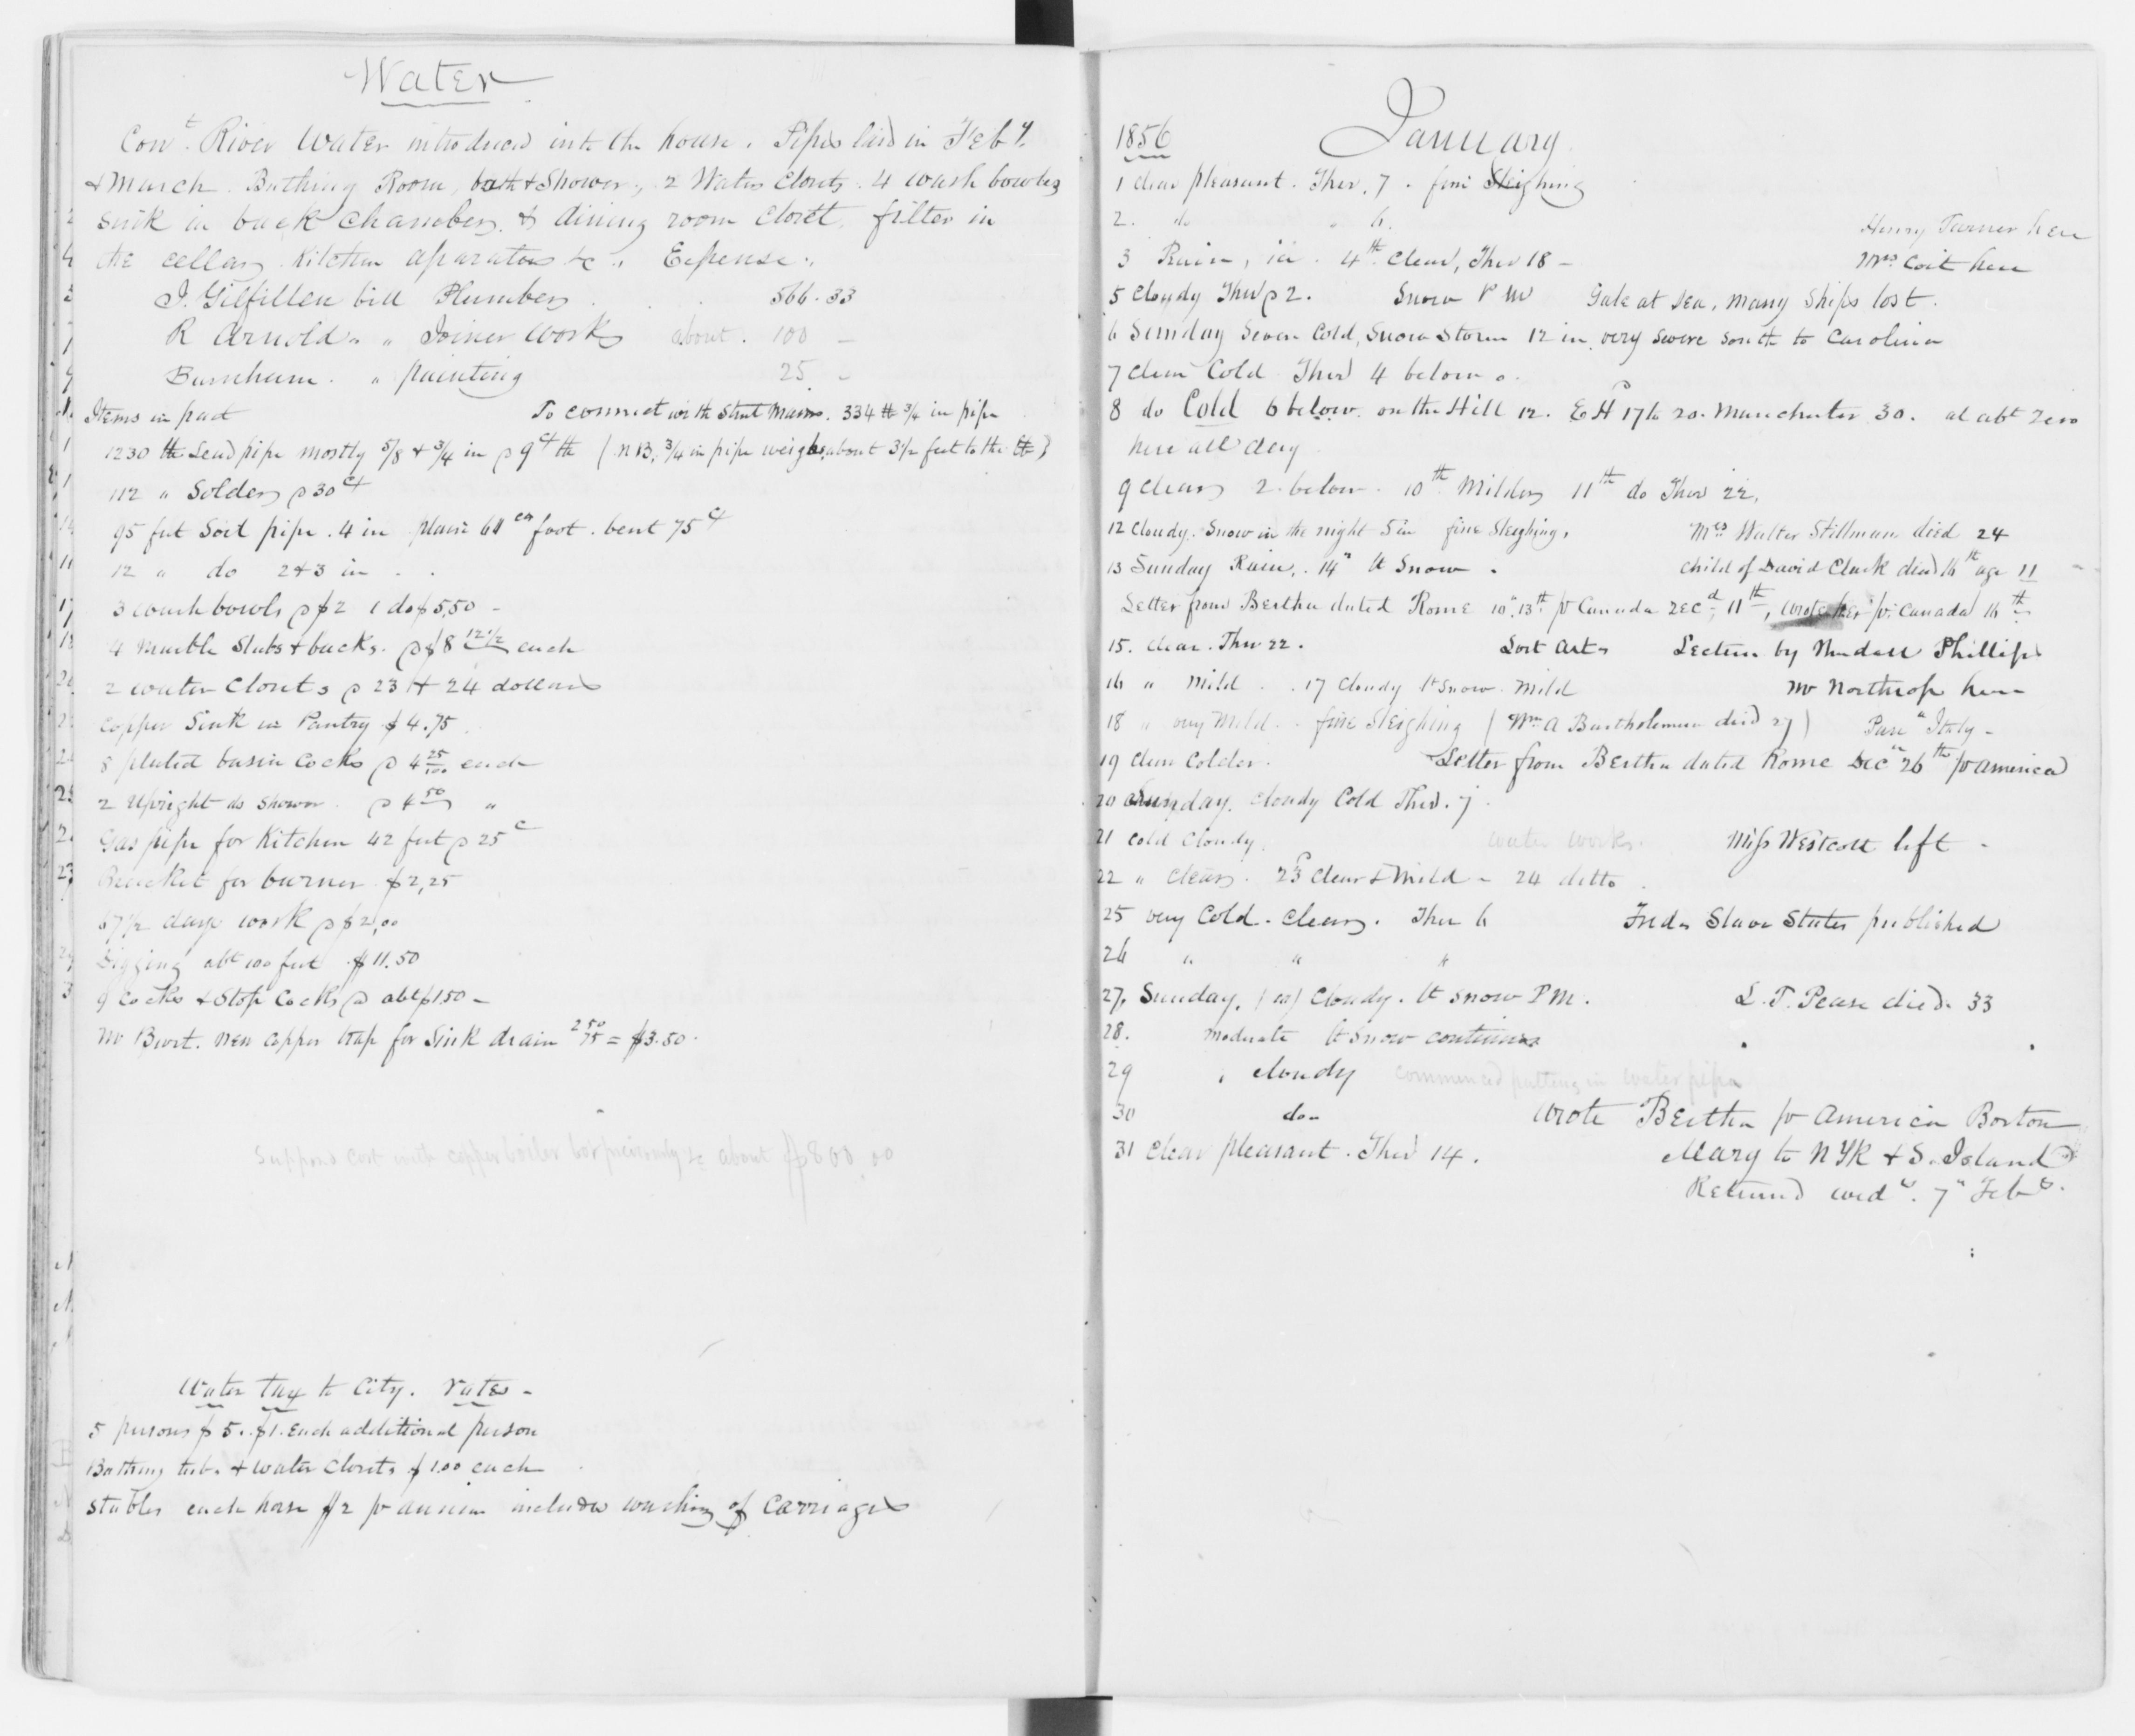 Water
Con.t River Water introduced into the house. Pipes laid in Feby.
& March. Bathing Room, bath & Shower, 2 Water Closets. 4 wash bowles
Sink in back chamber & dining room closet, filter in
the cellar, Kitchen aparatus &c. Expense.
J. Gilfillen bill Plumber 566.33
R Arnold " " Joiner work about. 100 —
Burnham. " painting 25 -
Items in part To connect with street main. 334 lb 3/4 in pipe
1230 lb Lead pipe mostly 5/8 & 3/4 in @ 9 ct lb (NB, 3/4 in pipe weighs about 3 1/2 feet to the lb)
112 " Solder @ 30 ct
95 feet Soil pipe. 4 in plain 60 cts foot. bent 75 ct
12 " do 2 & 3 in . .
3 wash bowls @ $2 1 do $5.50 -
4 Marble Slabs & backs. @ $8 12 1/2 each
2 water Closets @ 23 & 24 dollars
Copper Sink in Pantry $4.75
8 plated basin Cocks @ 4 25/100 each
2 Upright do shower @ 4 50 "
Gas pipe for Kitchen 42 feet @ 25 c
Bracket for burner $2,25
days work @ $2,00
Digging abt 100 feet $11.50
9 Cocks & Stop Cocks @ abt $1.50 -
new Copper trap for Sink drain 2 50 75 = $3.50.
Suppose Cost with copper boiler put previously &c about $800.00
Water tax to City. rates -
5 persons $5. $1. Each additional person
Bathing tubs & water Closets $1.00 each
Stables each horse $2 pr annum includes washing of Carriages
1856 January
1 clear pleasant. Ther. 7. fine Sleighing
2. do " 6. Henry Turner here
3 Rain, ice. 4th Clear, Ther 18 - Mrs Coit here
5 Cloudy Ther @ 2. Snow P M Gale at Sea, many Ships lost.
6 Sunday Severe Cold, Snow Storm 12 in. very severe south to Carolina
7 Clear Cold Ther 4 below 0.
8 do Cold 6 below. on the Hill 12. E H 17 to 20. Manchester 30. at abt zero
here all day
9 Clear 2 below. 10th Milder 11th do Ther 22.
12 Cloudy. Snow in the night 5 in fine Sleighing. Mrs Walter Stillman died 24
13 Sunday Rain. 14" lt Snow. child of David Clark died 16th age 11
Letter from Bertha dated Rome 10" 13th pr Canada Recd 11th, wrote her pr Canada 16th
15. Clear. Ther 22. Lost Arts Lecture by Wendell Phillips
16 " Mild . . 17 Cloudy lt Snow. Mild Mr Northrop here
18 " very Mild. . fine Sleighing (Wm A Bartholomew died 27) "Italy -
19 Clear Colder. Letter from Bertha dated Rome Dec" 26th pr America
20 Sunday. Cloudy Cold Ther. 7.
21 Cold Cloudy water works. Miss Westcott left -
22 " Clear. 23 Clear & Mild - 24 ditto
25 very Cold. Clear. Ther 6 Slave States published
26 " " "
27. Sunday, Cloudy. lt snow PM. L. T. Pease died. 33
28. moderate lt Snow continues
29 " cloudy commenced putting in water pipe
30 do- Wrote Bertha pr America Boston
31 Clear pleasant. Ther 14. Mary to N Yk & S. Island
Returned wed". 7" Feby.